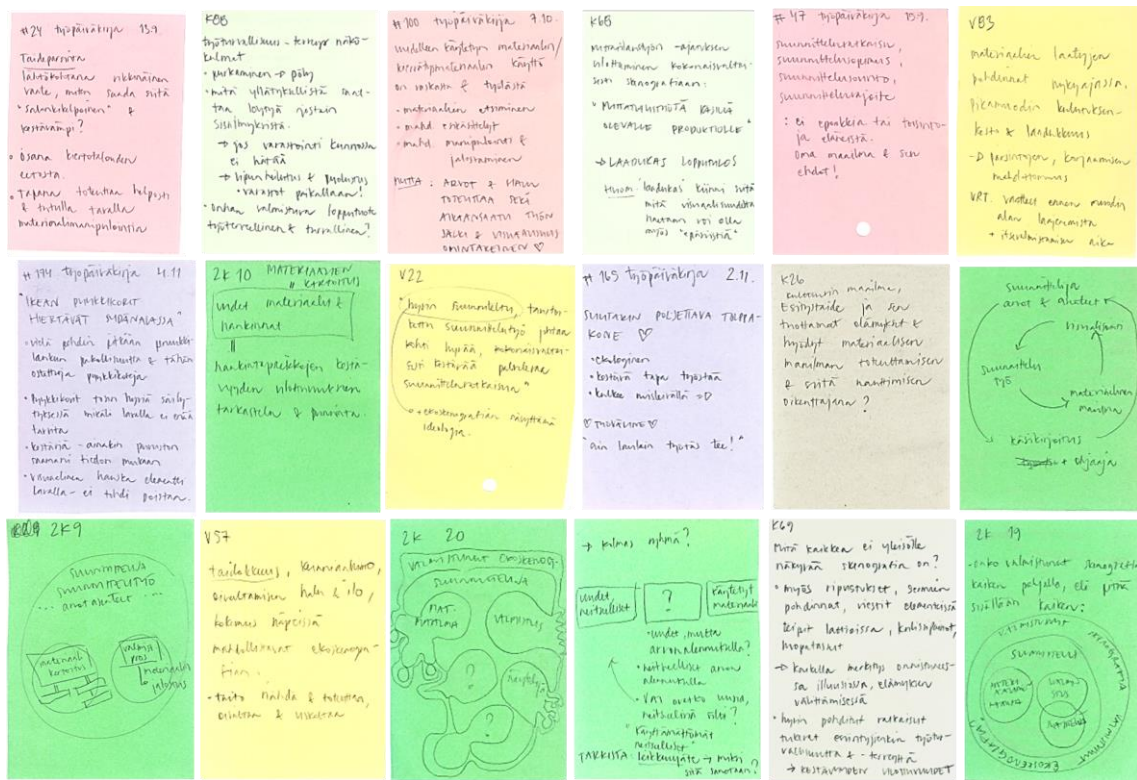 #24 työpäiväkirja 13.9.
Taideparsinta
lähtökohtana rikkinäinen
vaate, miten saada siitä
"salonkikelpoinen" &
kestävämpi?
• Osana kiertotalouden
eetosta.
• Tapana toteuttaa helposti
& tutulla tavalla
materiaalimanipulointia
K88
työturvallisuus - terveys näkö-
kulmat
• purkaminen → pöly
• mitä yllätyksellistä saat-
taa löytyä jostain
sisälmyksistä.
→ jos varastointi kunnossa
ei hätää
→ lopun huolutus & puolustus
• varastot paikallaan!
• Onhan valmistuva lopputuote
työterveellinen & turvallinen?
#100 työpäiväkirja 7.10.
uudelleen käytetyn materiaalin/
kierrätysmateriaalin käyttö
on raskasta & työlästä
• materiaalien etsiminen
• mahd. esikäsittelyt
• mahd. manipulointi &
jalostaminen
MUTTA: ARVOT & HALU
TOTEUTTAA SEKÄ
AIKAANSAATU TYÖN
JÄLKI & VISUAALISUUS
OMINTAKEINEN ♡
K68
mittatilaustyön -ajatuksen
ulottaminen kokonaisvaltai-
sesti skenografiaan:
"MITTATILAUSTYÖTÄ KÄSILLÄ
OLEVALLE PRODUKTIOLLE"
→ LAADUKAS LOPPUTULOS
HUOM! 'laadukas' kiinni siitä
mitä visuaalisuudelta
haetaan voi olla
myös "epäsiistiä"
#47 työpäiväkirja 15.9.
suunnitteluratkaisu,
suunnittelusopimus,
suunnittelusointu,
suunnitteluvajoite
: ei epookkia tai toisinto-
ja eläneistä.
Oma maailma & sen
ehdot!
V83
materiaalien laatujen
pohdinnat nykyajassa.
Pikamuodin kulutuksen-
kesto & laadukkuus
→ parsintojen, korjaamisen
mahdottomuus
VRT. vaatteet ennen muodin
alan laajenemista
+ itsevalmistamisen aika
#194 työpäiväkirja 4.11
"IKEAN PUNKKIKORIT
HIERTÄVÄT SYDÄNALASSA"
• vielä pohdin jätään
lankun pakollisuutta & tähän
ostettuja
• hyviä säily-
tyksessä mikäli lavalla ei enää
tarvita
• kestäviä - ainakin puuston
saamani tiedon mukaan
• visuaalinen hauska elementti
lavalla - ei tehdi poistaa.
2K 10 MATERIAALIEN
KARTOITUS
uudet materiaalit &
hankinnat
hankintapaikkojen kestä-
vyyden
tarkastelu & punninta.
V22
"hyvin suunniteltu, taustoi-
tettu suunnittelutyö johtaa
kohti hyvää, kokonaisvaltai-
sesti kestävää palvelevaa
suunnitteluratkaisua"
• ekoskenografian näyttämö
ideologia.
#165 työpäiväkirja 2.11.
SUUTARIN POLJETTAVA TOPPA-
KONE ♡
• ekologinen
• kestävä tapa työstää
• kulkee missä vain
♡ TYÖVÄLINE ♡
"niin laulain työtäs tee!"
K26
kulttuurin maailma,
Esitystaide ja sen
tuottamat elämykset &
hyödyt materiaalisen
maailman toteuttamisen
& siitä nauttimisen
oikeuttajana?
suunnittelija
arvot & aiheet
visuaalisuus
suunnittelu
työ
materiaalinen
maailma
käsikirjoitus
+ ohjaaja
2K9
SUUNNITTELIJA
SUUNNITTELUTYÖ
... arvot asiat ...
materiaali
kartoitus
valmistus
pros.
materiaalin
jalostus
V57
taidokkuus, kunnianhimo,
oivaltamisen halu & ilo,
kokemus näpeissä
mahdollistavat ekoskenogra-
fian.
• taito nähdä & toteuttaa,
oivaltaa & uskaltaa
2K 20
VALMISTUNUT EKOSKENOG.
SUUNNITTELIJA
MAT.
MAAILMA
VALMISTUS
?
käyttäjä
?
→ kolmas ryhmä?
uudet,
neitseelliset
?
käytetyt
materiaalit
• uudet, mutta
arvonalennuksella?
• neitseelliset arvon
alennuksella
• Vai ovatko uusia,
neitseellisiä silti?
"käyttämättömät
neitseelliset"
TARKISTA leikkuujäte → miksi
sitä sanotaan?
K69
Mitä kaikkea ei yleisölle
näkyvää skenografia on?
• myös ripustukset, seinien
pohdinnat, viestit elementeissä
teipit lattioissa,
→ kaikella merkitys onnistunees-
sa illuusiossa, elämyksen
välittämisessä
• hyvin pohditut ratkaisut
tukevat esiintyjienkin työtur-
vallisuutta & -terveyttä
→ KESTÄVYYDEN ULOTTUVUUDET
2K 19
• onko valmistunut skenografia
kaiken pohjalla, eli pitää
sisällään kaiken:
SUUNNITTELIJA
MATERI-
AALINEN
MAAILMA
VALMIS-
TUS
VALMISTUNUT
EKOSKENOGRAFIA?